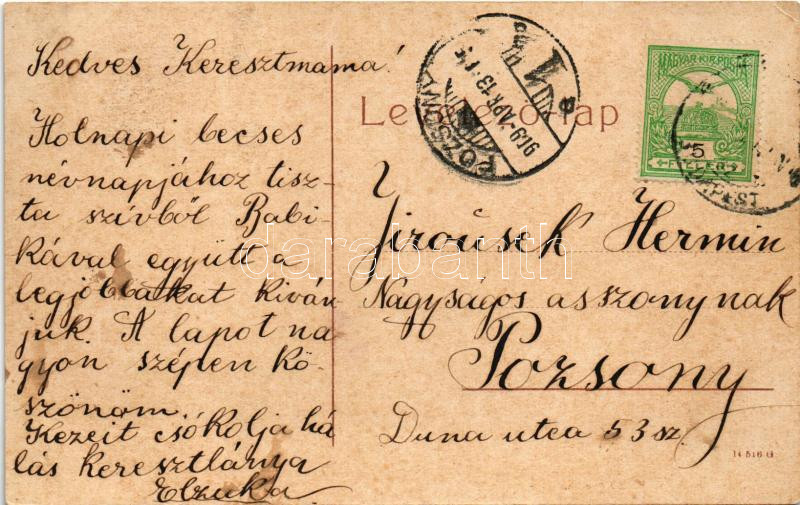 Kedves Keresztmama!
Holnapi becses
névnapjához tisz-
ta szívből Babi-
kával együtt a
legjobbakat kíván
juk. A lapot na
gyon szépen kö-
szönöm.
Kezeit csókolja há
lás keresztlánya
Elzuka
Levelező-lap
POZSONY
909 APR 13
MAGYAR KIR. POSTA
5
FILLÉR
Jiroušek Hermin
Nagyságos asszonynak
Pozsony
Duna utca 53 sz
14516
darabanth